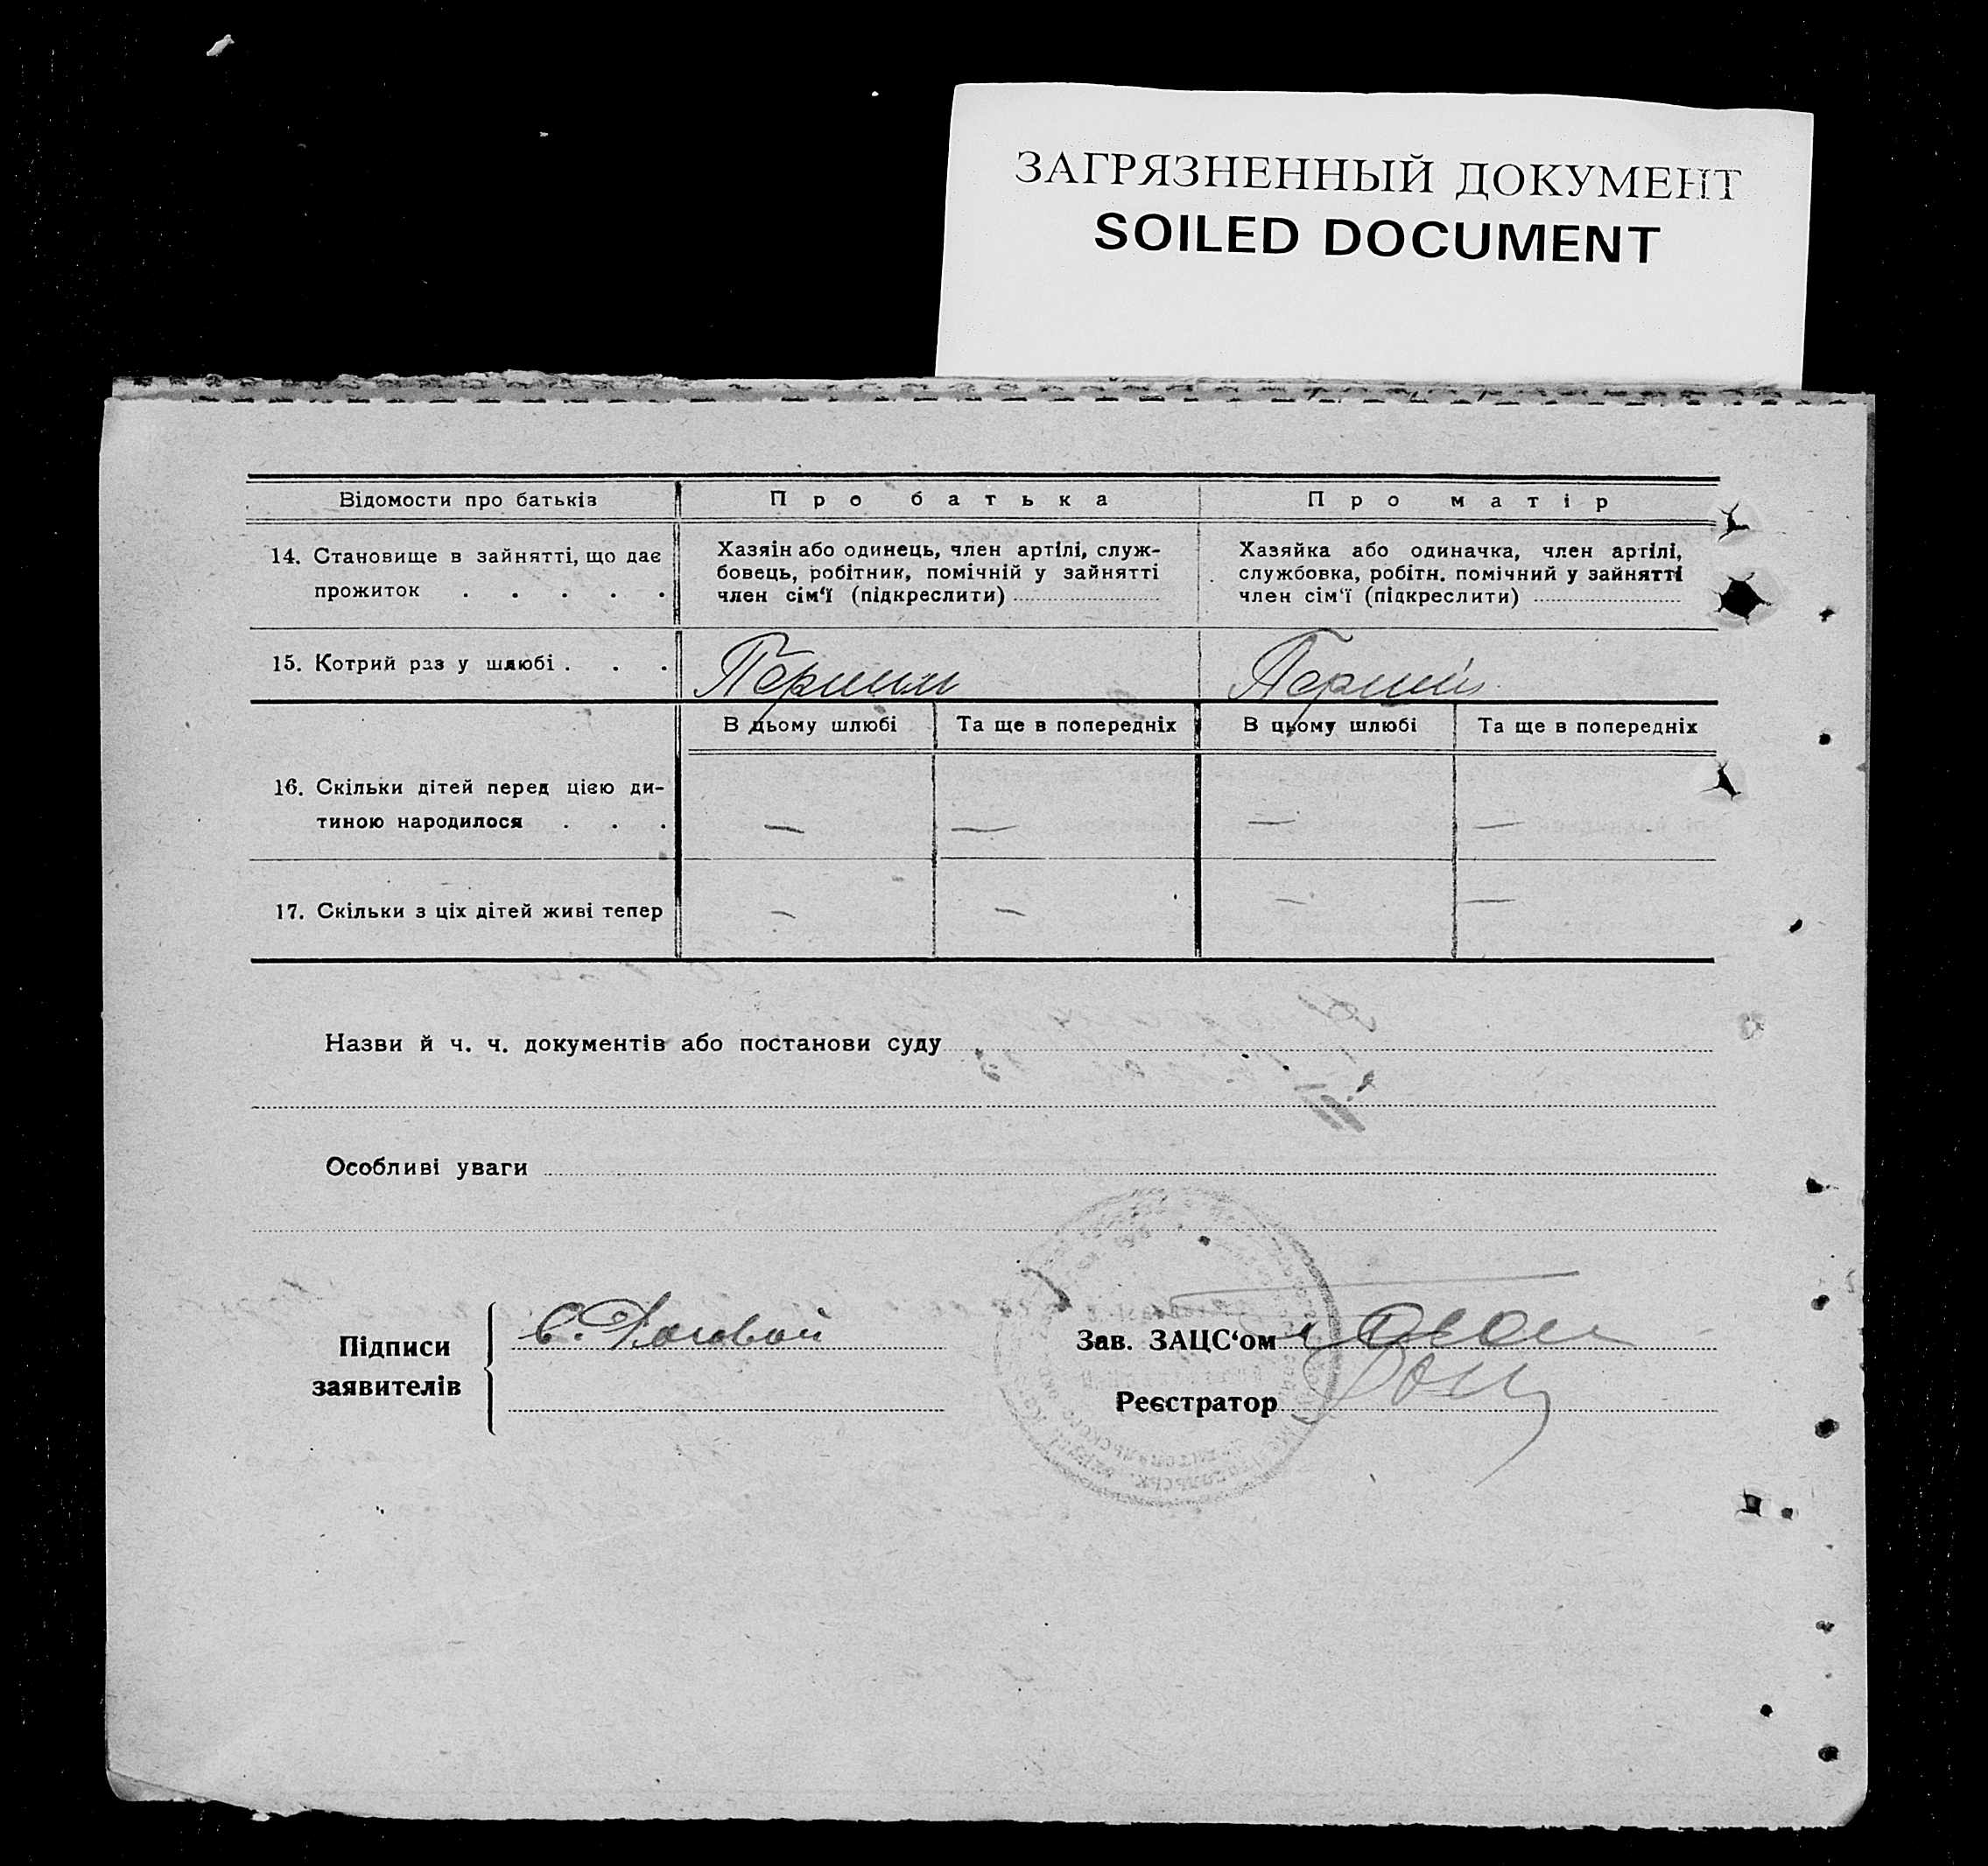 ЗАГРЯЗНЕННЫЙ ДОКУМЕНТ
SOILED DOCUMENT
Відомости про батьків
Про батька
Про матір
14. Становище в зайнятті, що дає
прожиток . . . . .
Хазяїн або одинець, член артілі, служ-
бовець, робітник, помічній у зайнятті
член сім‘ї (підкреслити)
Хазяйка або одиначка, член артілі,
службовка, робітн. помічний у зайнятті
член сім‘ї (підкреслити)
15. Котрий раз у шлюбі . . .
Перший
Перший
В цьому шлюбі
Та ще в попередніх
В цьому шлюбі
Та ще в попередніх
16. Скільки дітей перед цією ди-
тиною народилося . . .
— — — —
17. Скільки з ціх дітей живі тепер
— — — —
Назви й ч. ч. документів або постанови суду
Особливі уваги
Підписи
заявителів
Зав. ЗАЦС‘ом
Реєстратор